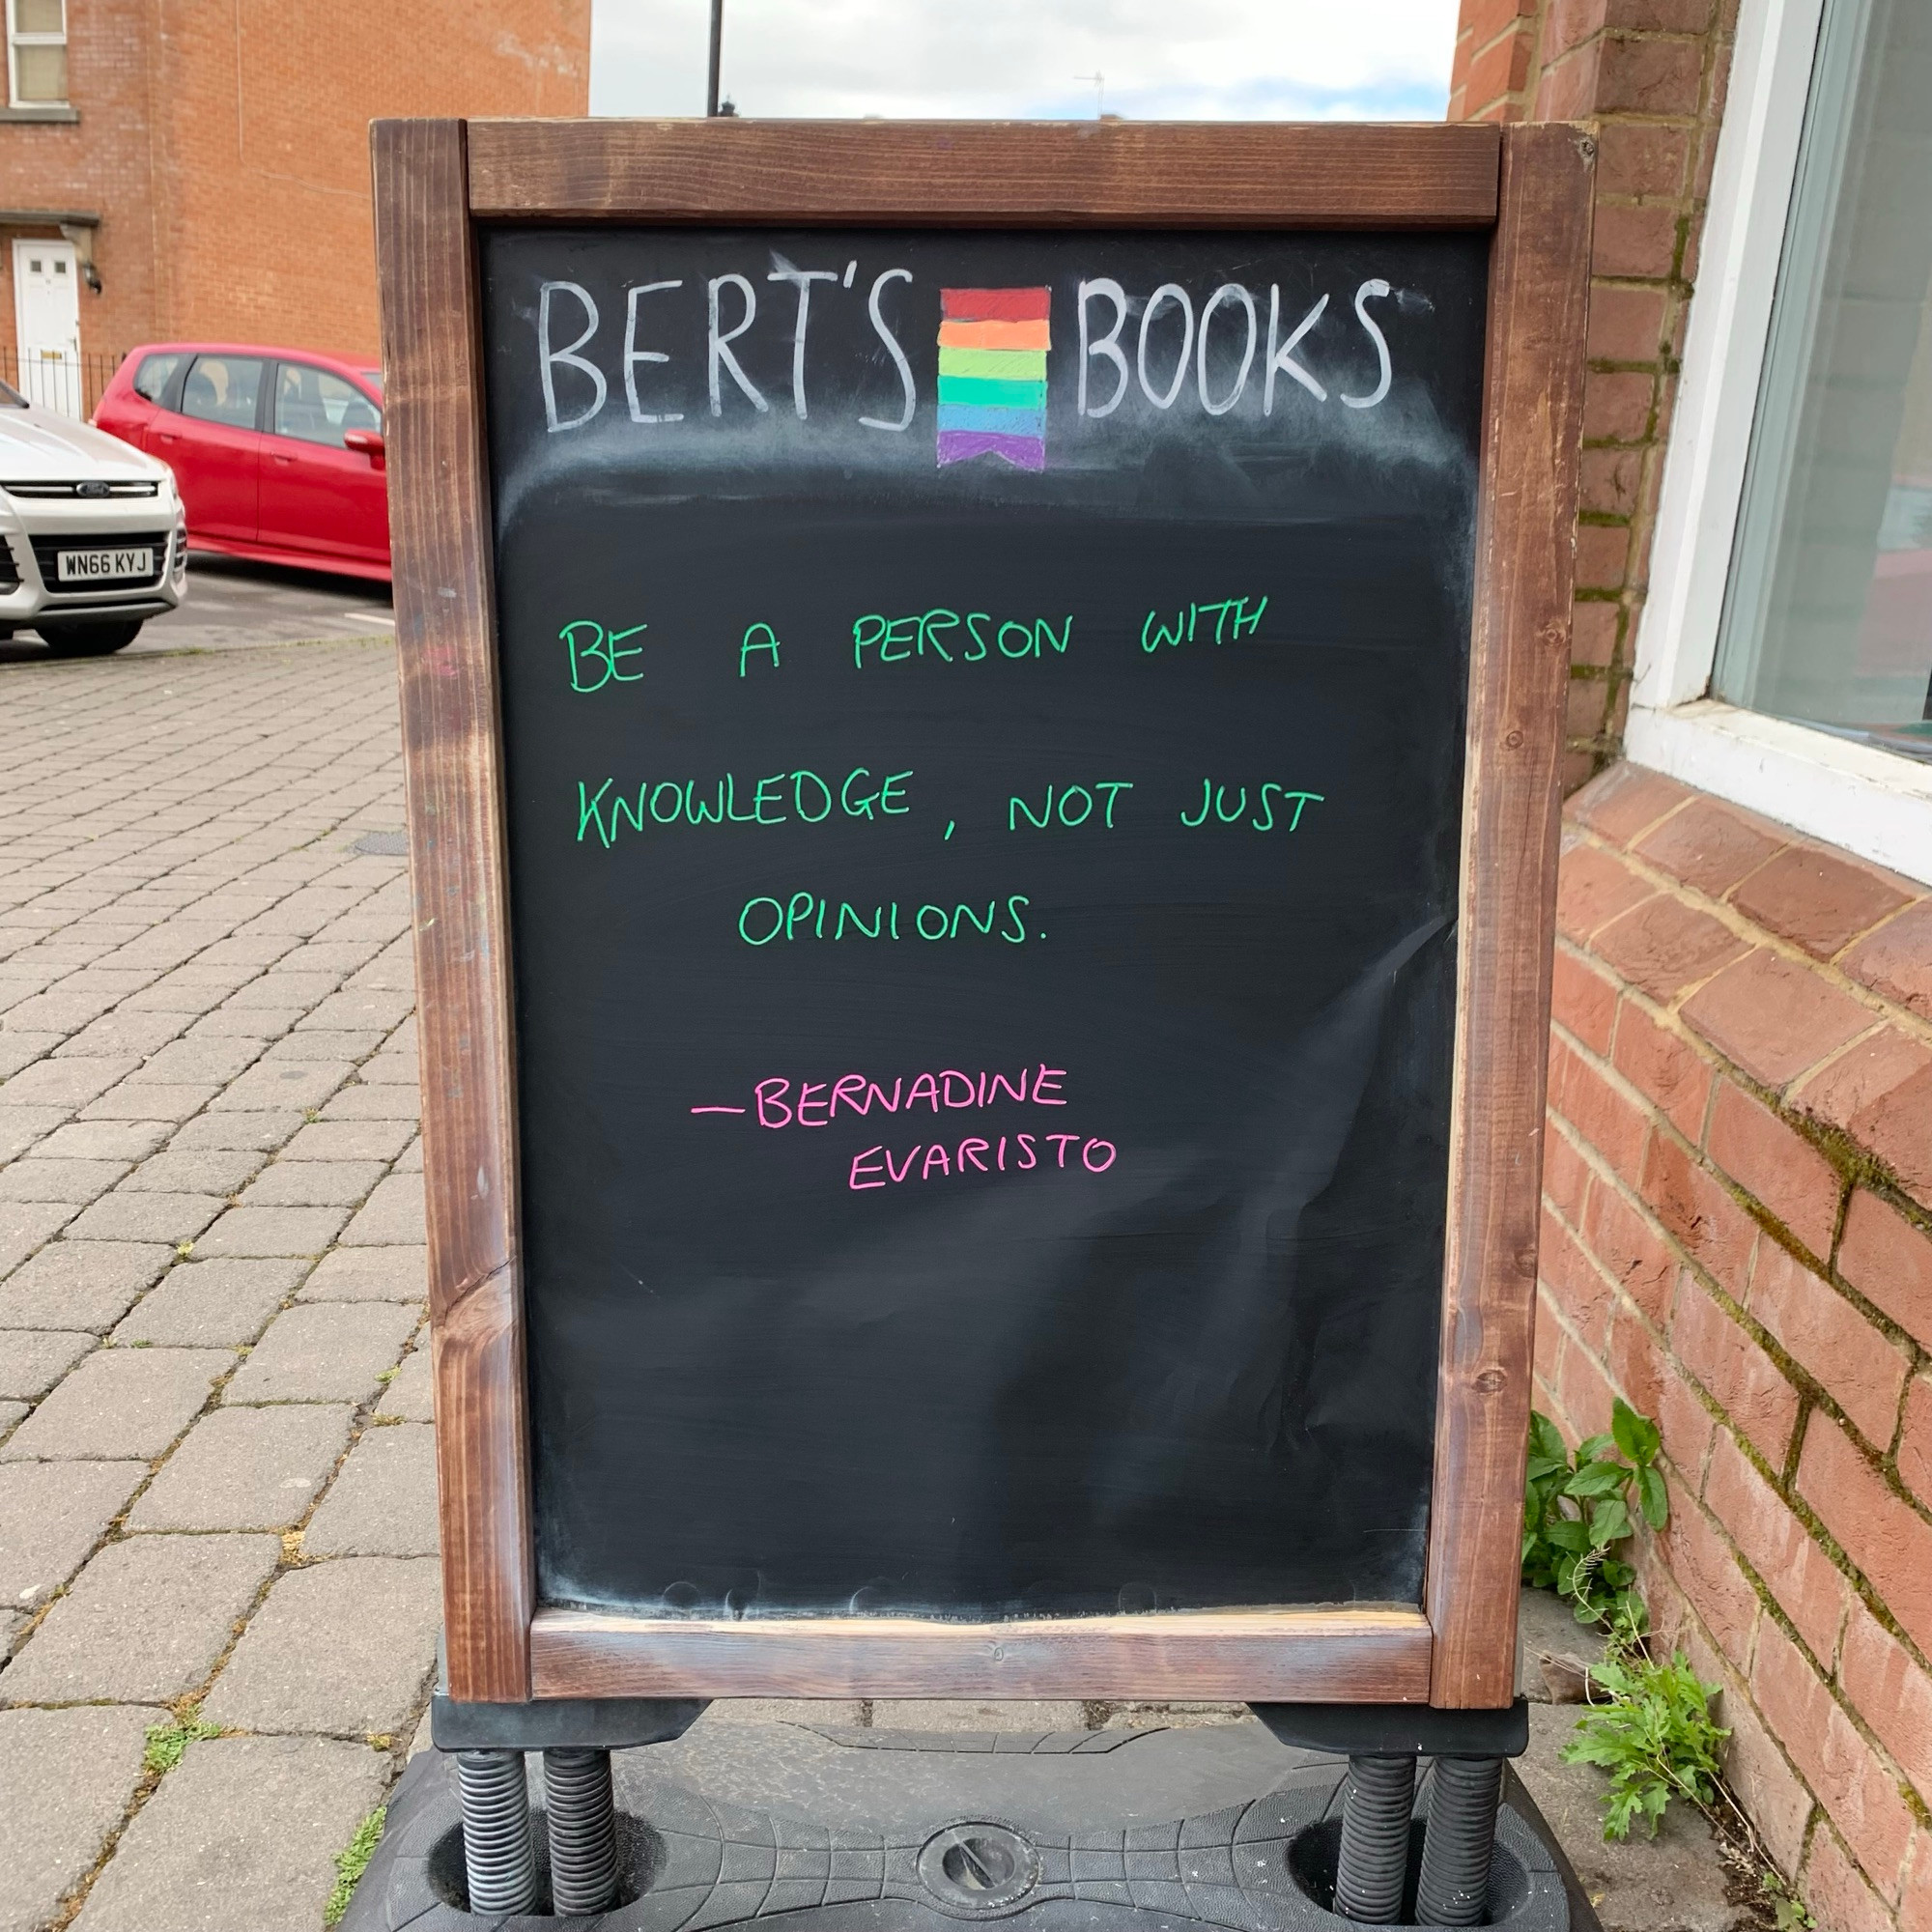 BERT'S BOOKS
BE A PERSON WITH
KNOWLEDGE, NOT JUST
OPINIONS.
—BERNADINE
EVARISTO
WN66 KYJ